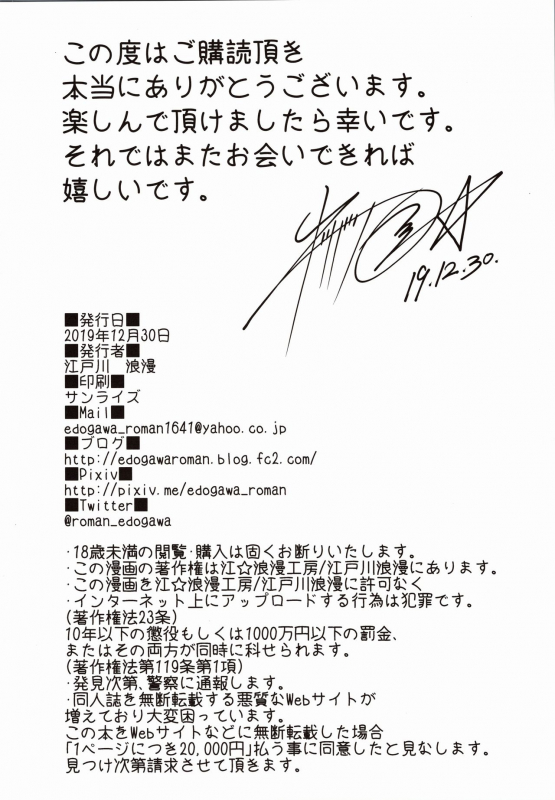 この度はご購読頂き
本当にありがとうございます。
楽しんで頂けましたら幸いです。
それではまたお会いできれば
嬉しいです。
19.12.30.
■発行日■
2019年12月30日
■発行者■
江戸川　浪漫
■印刷■
サンライズ
■Mail■
edogawa_roman1641@yahoo.co.jp
■ブログ■
http://edogawaroman.blog.fc2.com/
■Pixiv■
http://pixiv.me/edogawa_roman
■Twitter■
@roman_edogawa
・18歳未満の閲覧・購入は固くお断りいたします。
・この漫画の著作権は江☆浪漫工房/江戸川浪漫にあります。
・この漫画を江☆浪漫工房/江戸川浪漫に許可なく
・インターネット上にアップロードする行為は犯罪です。
(著作権法23条)
10年以下の懲役もしくは1000万円以下の罰金、
またはその両方が同時に科せられます。
(著作権法第119条第1項)
・発見次第、警察に通報します。
・同人誌を無断転載する悪質なWebサイトが
増えており大変困っています。
この本をWebサイトなどに無断転載した場合
「1ページにつき20,000円」払う事に同意したと見なします。
見つけ次第請求させて頂きます。